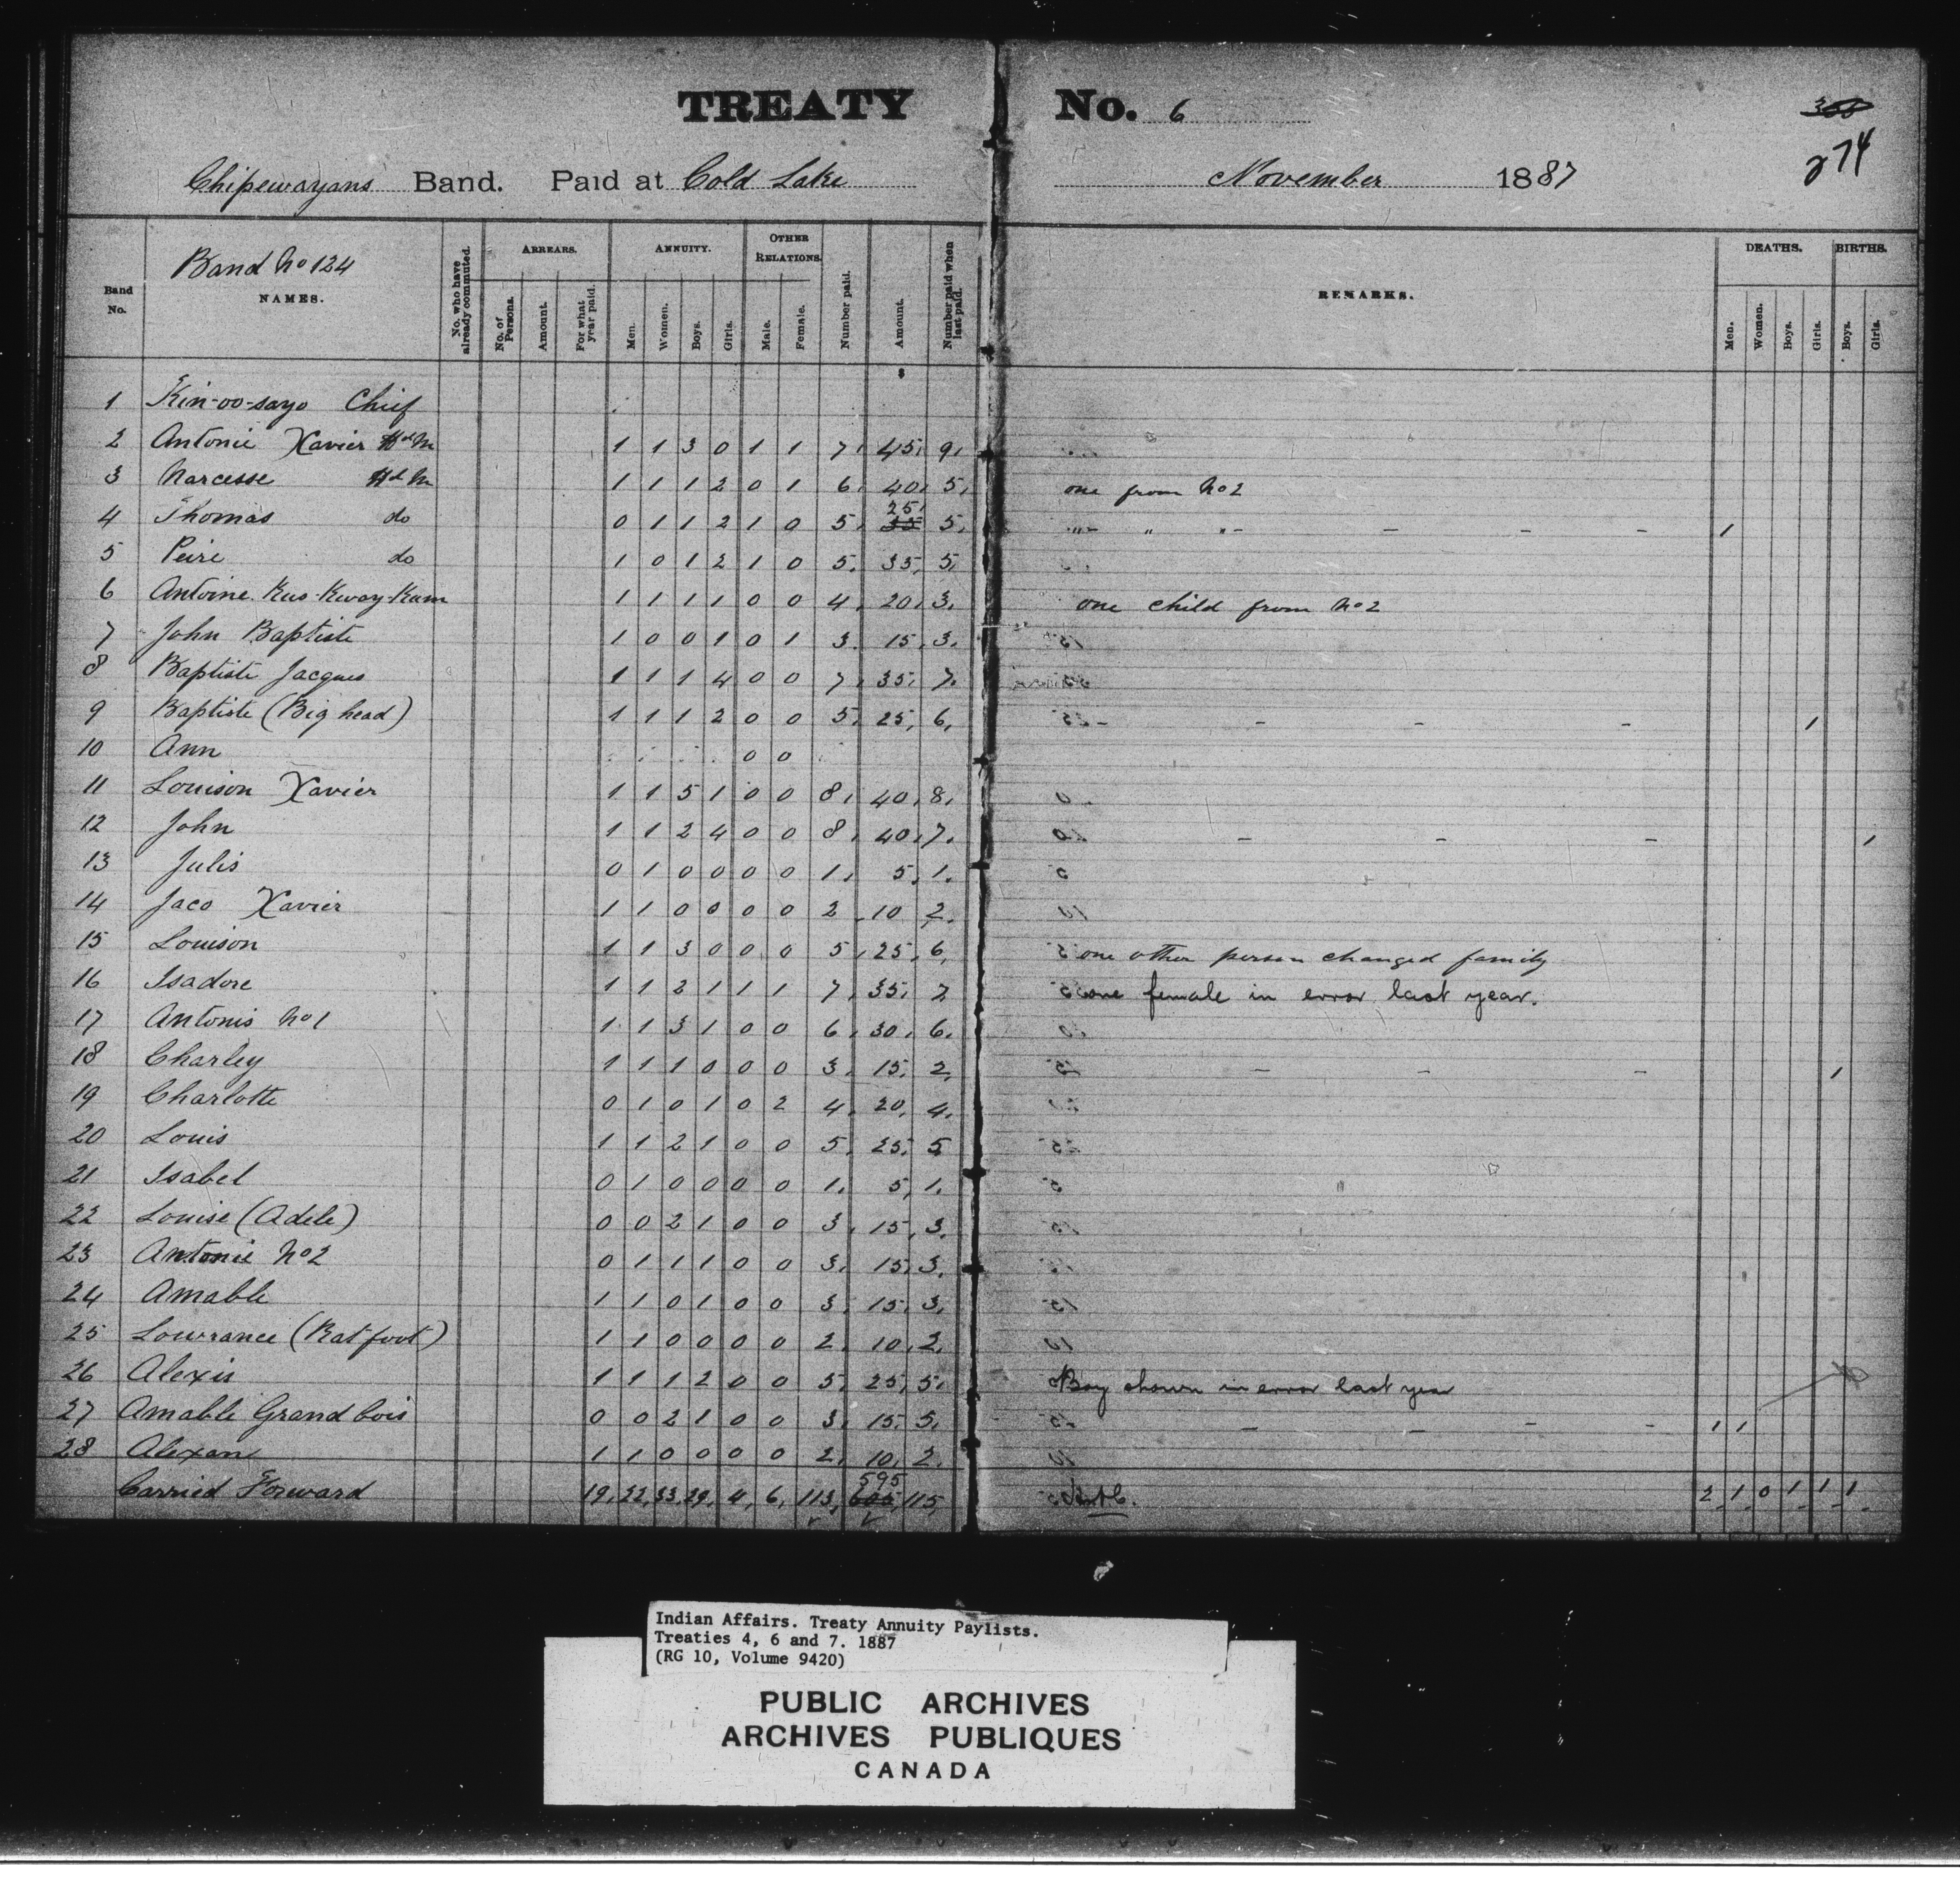 TREATY No. 6
274
Chipewayans Band. Paid at Cold Lake November 1887
Band No. Band No 124 NAMES. No. who have already commuted. ARREARS. No. of Persons. Amount. For what year paid. ANNUITY. Men. Women. Boys. Girls. OTHER RELATIONS. Male. Female. Number paid. Amount. Number paid when last paid. REMARKS. DEATHS. Men. Women. Boys. Girls. BIRTHS. Boys. Girls.
$
1 Kin-oo-sayo Chief
2 Antonie Xavier HdM 1 1 3 0 1 1 7 45 9
3 Narcesse Hd M 1 1 1 2 0 1 6 40 5 one from No 2
4 Thomas do 0 1 1 2 1 0 5 35 25 5 " " " 1
5 Peire do 1 0 1 2 1 0 5 35 5
6 Antoine Kus-Kway-Kum 1 1 1 1 0 0 4 20 3 one child from No 2
7 John Baptiste 1 0 0 1 0 1 3 15 3
8 Baptiste Jacques 1 1 1 4 0 0 7 35 7
9 Baptiste (Big head) 1 1 1 2 0 0 5 25 6 1
10 Ann 0 0
11 Louison Xavier 1 1 5 1 0 0 8 40 8
12 John 1 1 2 4 0 0 8 40 7 1
13 Julis 0 1 0 0 0 0 1 5 1
14 Jaco Xavier 1 1 0 0 0 0 2 10 2
15 Louison 1 1 3 0 0 0 5 25 6 one other person changed family
16 Isadore 1 1 2 1 1 1 7 35 7 one female in error last year.
17 Antonis No 1 1 1 3 1 0 0 6 30 6
18 Charley 1 1 1 0 0 0 3 15 2 1
19 Charlotte 0 1 0 1 0 2 4 20 4
20 Louis 1 1 2 1 0 0 5 25 5
21 Isabel 0 1 0 0 0 0 1 5 1
22 Louise (Adele) 0 0 2 1 0 0 3 15 3
23 Antonie No 2 0 1 1 1 0 0 3 15 3
24 Amable 1 1 0 1 0 0 3 15 3
25 Lowrance (Rat foot) 1 1 0 0 0 0 2 10 2
26 Alexis 1 1 1 2 0 0 5 25 5 Boy shown in error last year
27 Amable Grand bois 0 0 2 1 0 0 3 15 5 1 1
28 Alexan 1 1 0 0 0 0 2 10 2
Carried Forward 19 22 33 29 4 6 113 605 595 115 2 1 0 1 1 1
Indian Affairs. Treaty Annuity Paylists.
Treaties 4, 6 and 7. 1887
(RG 10, Volume 9420)
PUBLIC ARCHIVES
ARCHIVES PUBLIQUES
CANADA